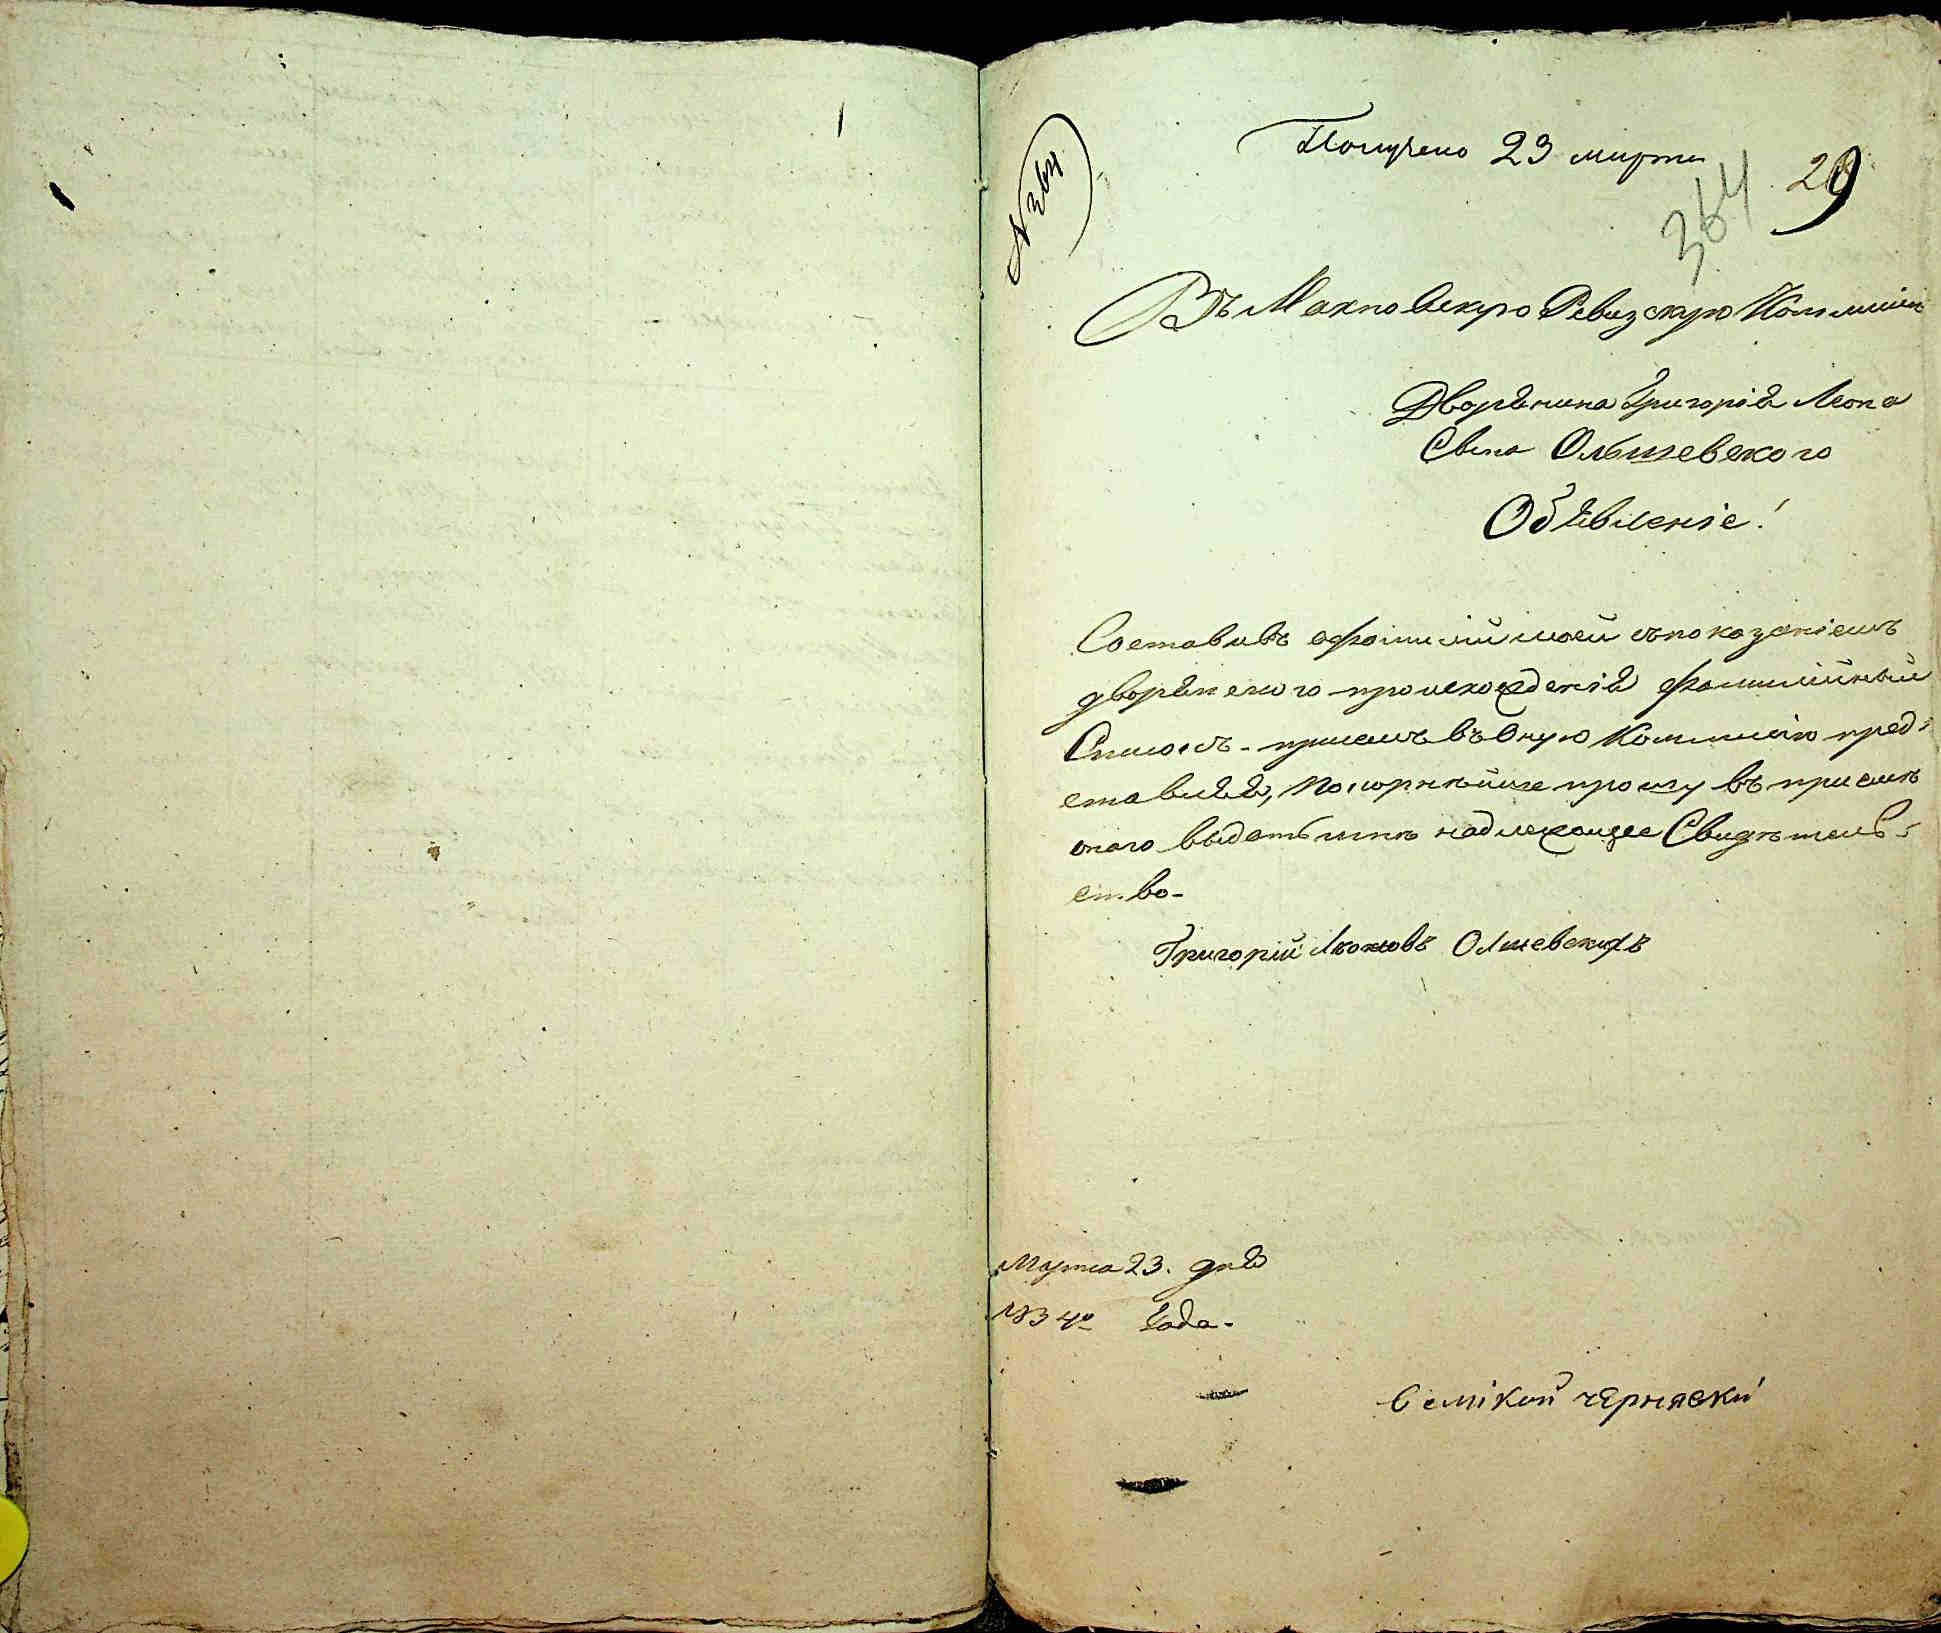 N 364
Получено 23 марта
364 29
Въ Махновскую Ревизскую Коммисію
Дворянина Григорія Леона
Сына Ольшевского
Объявленіе!
Составивъ о фамиліи моей съ показаніемъ
дворянского происхожденія фамилійный
Списокъ - при семъ въ оную Коммисію пред-
ставляя, покорнѣйше прошу въ пріемѣ
оного выдать мнѣ надлежащее Свидѣтель-
ство -
Григорій Олшевскихъ
Марта 23. дня
1834го Года -